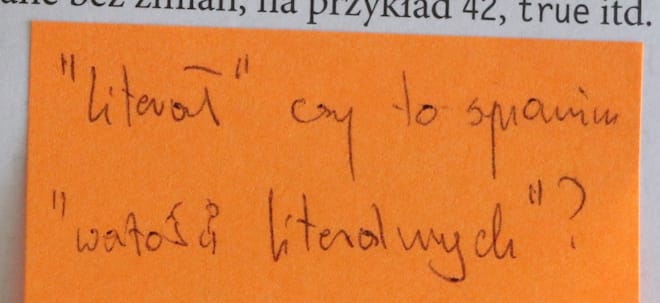 bez zmian, na przykład 42, true itd.
"Literał" czy to synonim
"watości literalnych"?